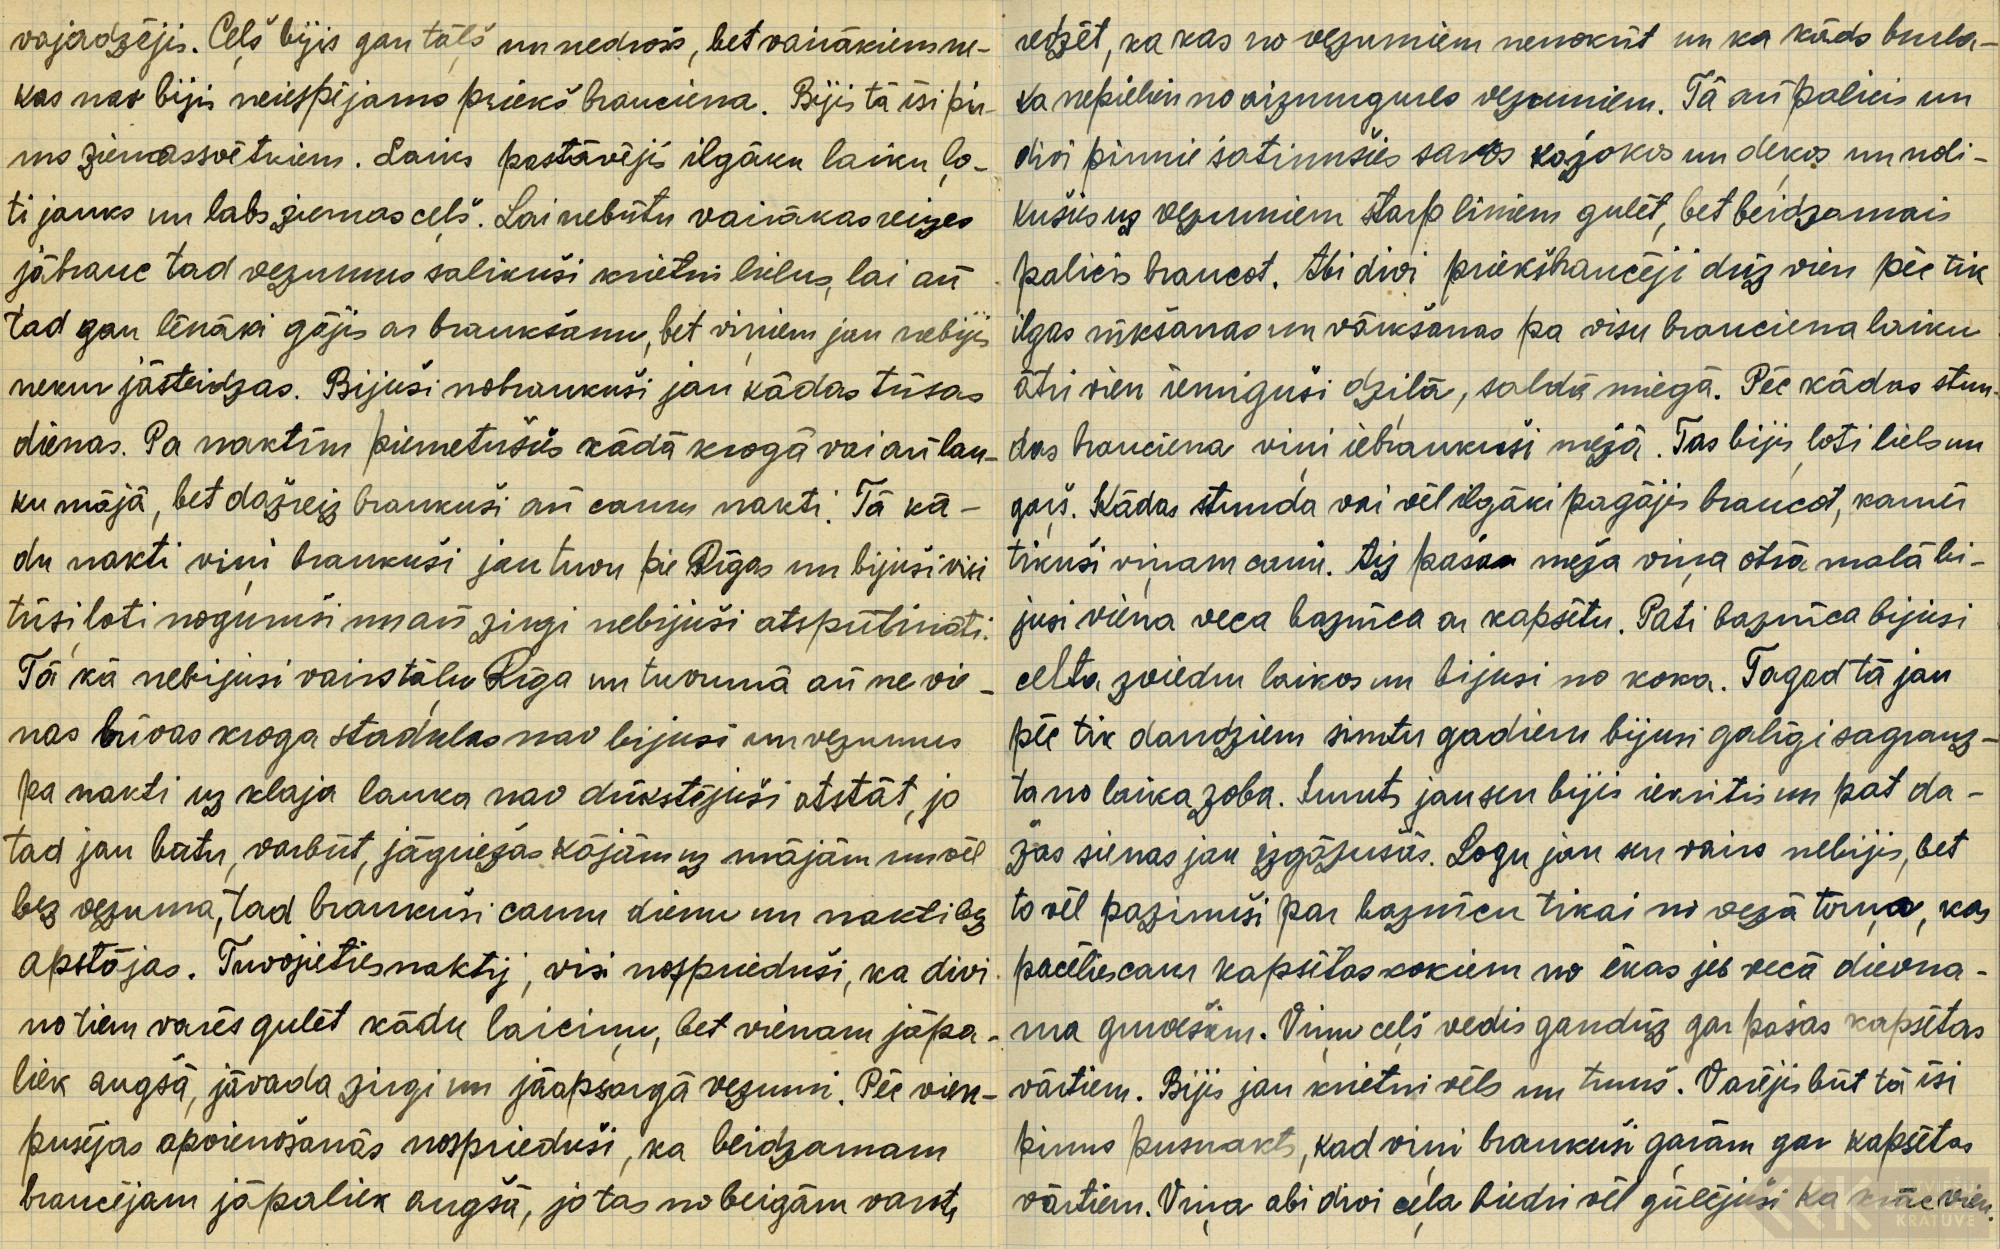 vajadzējis. Ceļš bijis gan tāļš un nedrošs, bet vairākiem ne-
kas nav bijis neiespējams priekš brauciena. Bijis tā īsi pir-
ms ziemassvētkiem. Laiks pastāvējis ilgāku laiku ļo-
ti jauks un labs ziemas ceļš. Lai nebūtu vairākas reizes
jābrauc tad vezumus salikuši krietni lielus, lai arī
tad gan lēnāki gājis ar braukšanu, bet viņiem jau nebijis
nekur jāsteidzas. Bijuši nobraukuši jau kādas trīsas
dienas. Pa naktīm piemetušies kādā krogā vai arī lau-
ku mājā, bet dažreiz braukuši arī cauru nakti. Tā kā-
du nakti viņi braukuši jau tuvu pie Rīgas un bijuši visi
trīsi ļoti noguruši un arī zirgi nebijuši atspūtināti.
Tā kā nebijusi vairs tālu Rīga un tuvumā arī ne vie-
nas brīvas kroga stadulas nav bijusi un vezumus
pa nakti uz klaja lauka nav drīkstējuši atstāt, jo
tad jau batu, varbūt, jāgriežas kājām uz mājām un vēl
bez vezuma, tad braukuši cauru dienu un nakti bez
apstājas. Tuvojieties naktij, visi nosprieduši, ka divi
no tiem varēs gulēt kādu laiciņu, bet vienam jāpa-
liek augšā, jāvada zirgi un jāapsargā vezumi. Pēc vien-
pusējas apvienošanās nosprieduši, ka beidzamam
braucējam jāpaliek augšā, jo tas no beigām varot
redzēt, ka kas no vezumiem nenokrīt un ka kāds burla-
ka nepielien no aizmugures vezumiem. Tā arī palicis un
divi pirmie satinušies savos kažokos un deķos un noli-
kušies uz vezumiem starp liniem gulēt, bet beidzamais
palicis braucot. Abi divi priekšbraucēji drīz vien pēc tik
ilgas nīkšanas un vārkšanas pa visu brauciena laiku
ātri vien iemiguši dziļā, saldā miegā. Pēc kādas stun-
das brauciena viņi iebraukuši mežā. Tas bijis ļoti liels un
gaŗš. Kādas stunda vai vēl ilgāki pagājis braucot, kamēr
tikuši viņam cauri. Aiz pašaa meža viņa otrā malā bi-
jusi viena veca baznīca ar kapsētu. Pati baznīca bijusi
celta zviedru laikos un bijusi no koka. Tagad tā jau
pēc tik daudziem simtu gadiem bijusi galīgi sagrauz-
ta no laika zoba. Jumts jau sen bijis iekritis un pat da-
žas sienas jau izgāzušās. Logu jau sen vairs nebijis, bet
to vēl pazinuši par baznīcu tikai no vezā torņa, kas
pacēlies caur kapsētas kokiem no ēkas jeb vecā dievna-
ma gruvešiem. Viņu ceļš vedis gandrīz gar pašas kapsētas
vārtiem. Bijis jau krietni vēls un tumš. Varējis būt tā īsi
pirms pusnakts, kad viņi braukuši gaŗām gar kapsētas
vārtiem. Viņa abi divi ceļa biedri vēl gulējuši ka krāc vien.